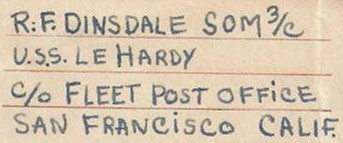 R.F. DINSDALE SOM 3/c
U.S.S. LE HARDY
C/O FLEET POST OFFICE
SAN FRANCISCO CALIF.